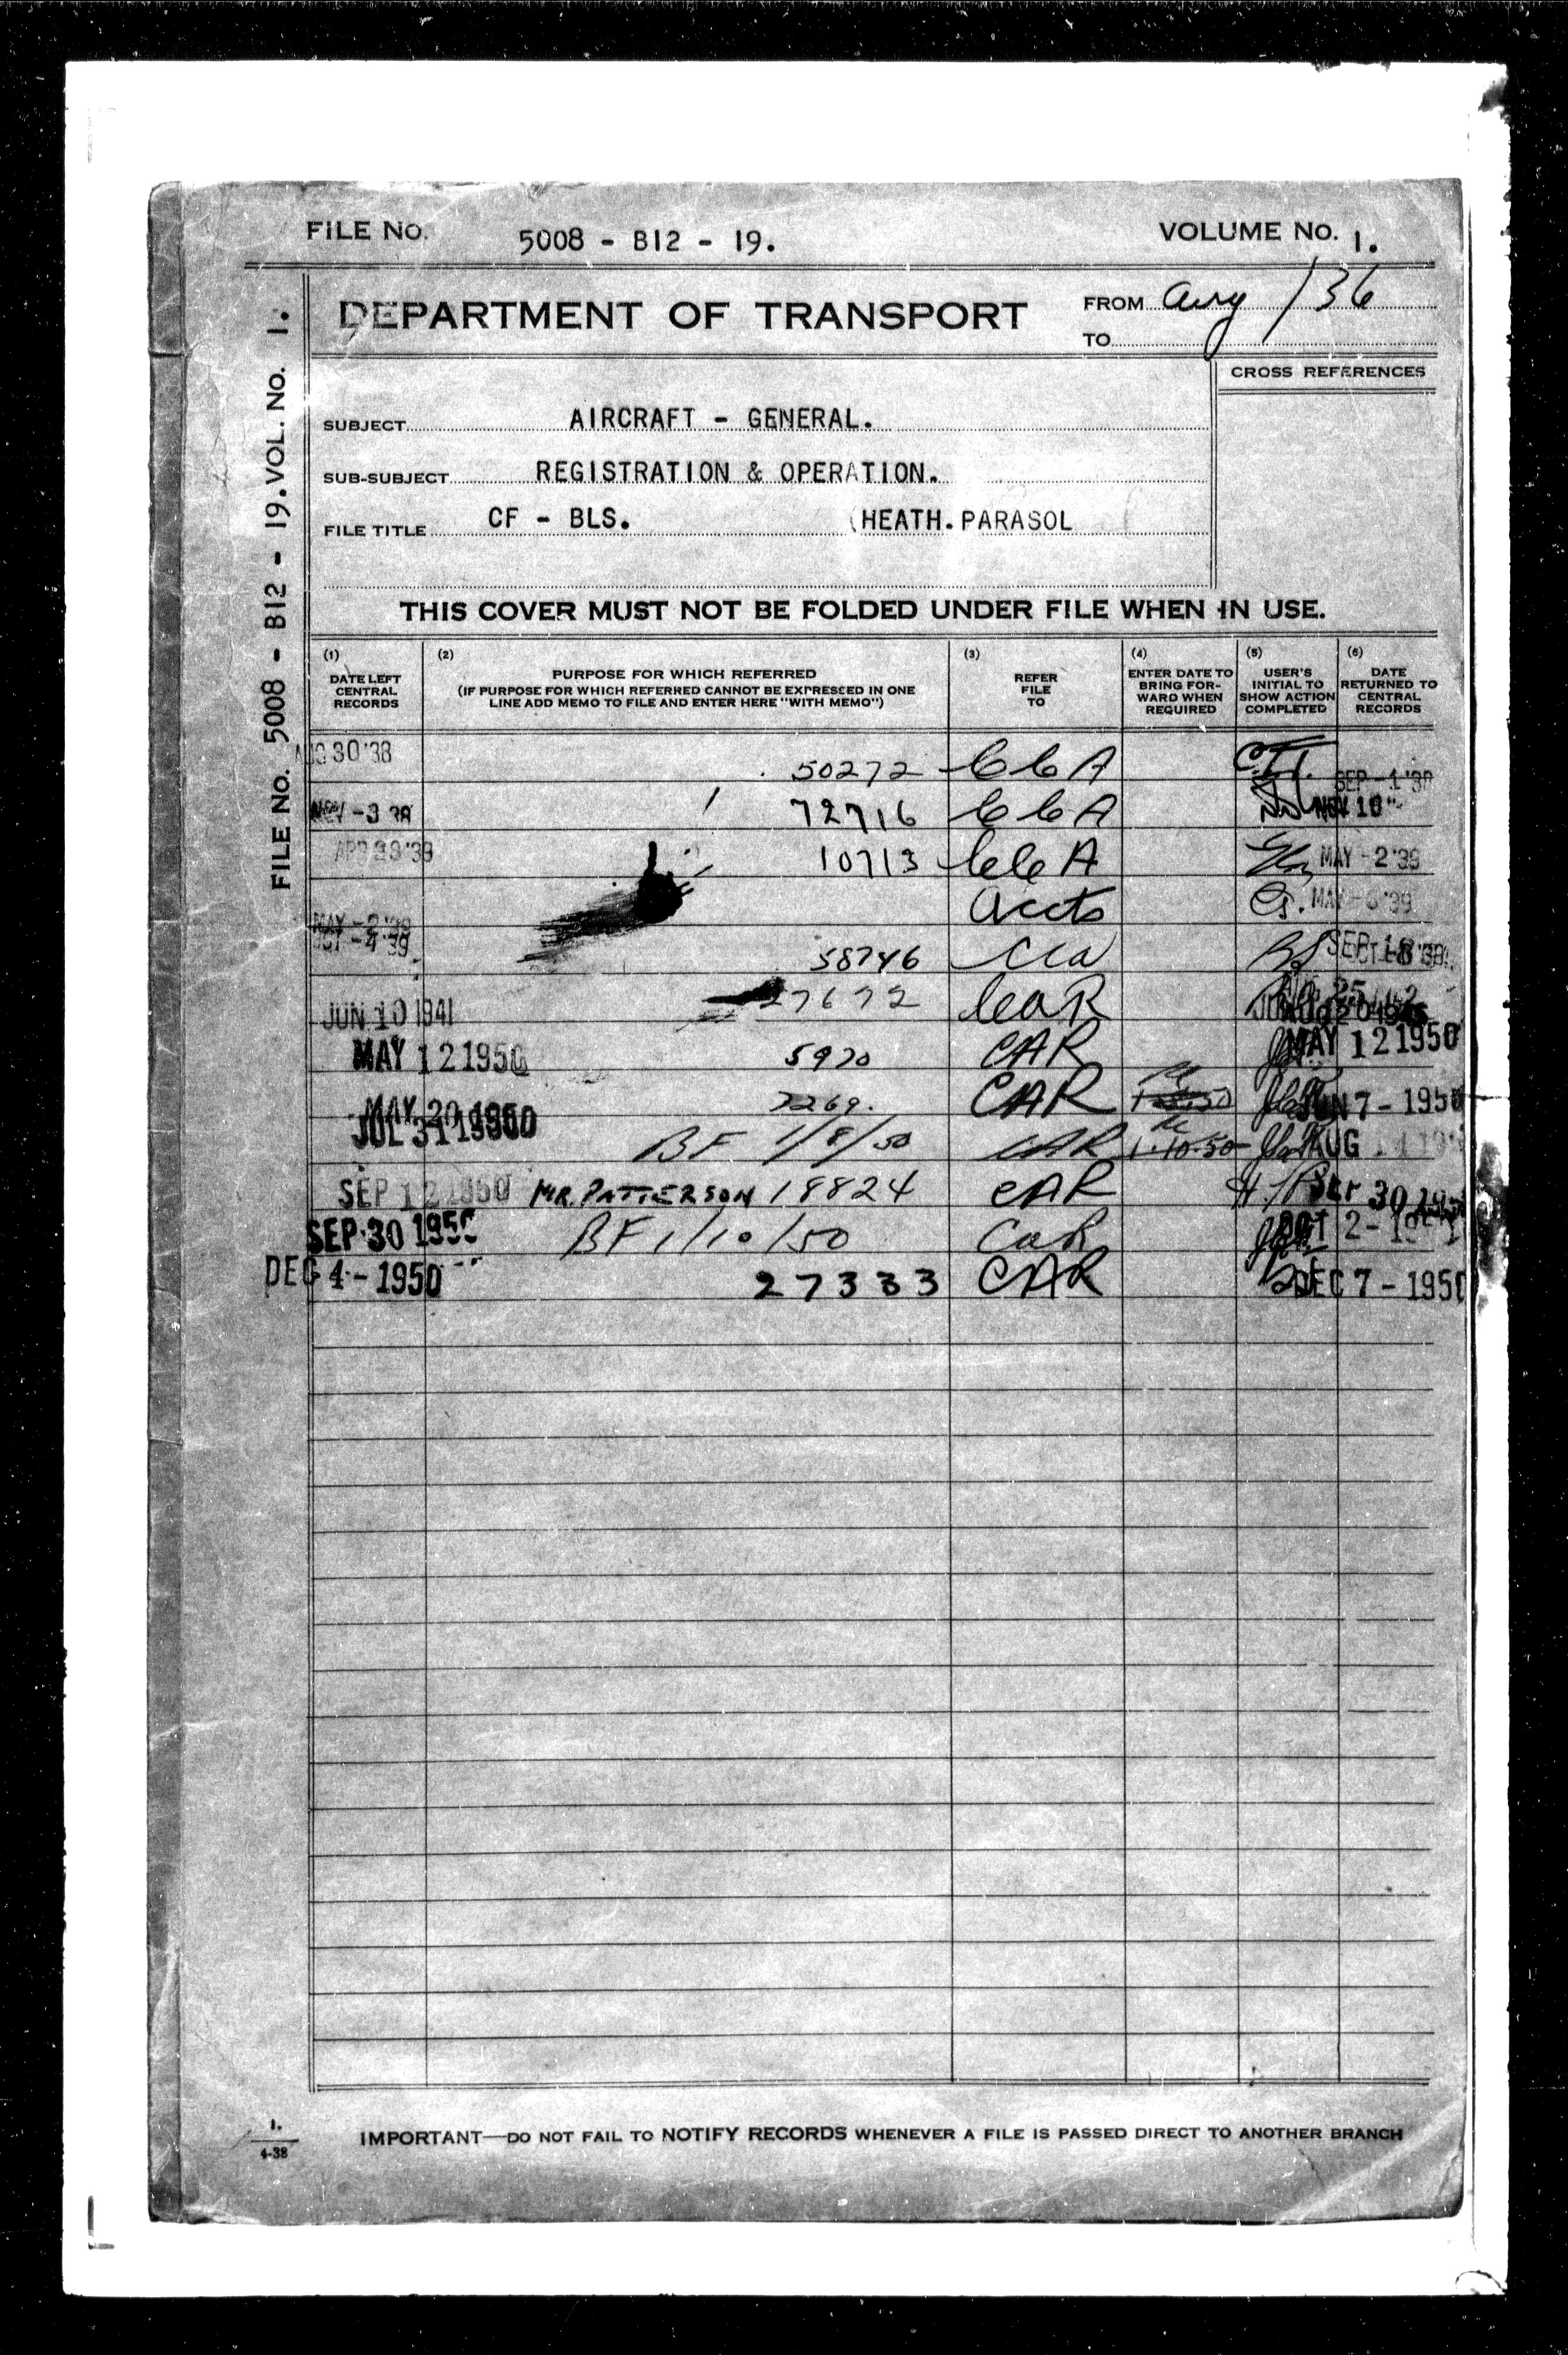 FILE NO. 5008 - B12 - 19. VOLUME NO. 1.
FILE NO. 5008 - B12 - 19. VOL. NO. 1.
DEPARTMENT OF TRANSPORT
FROM Aug /36
TO
CROSS REFERENCES
SUBJECT AIRCRAFT - GENERAL.
SUB-SUBJECT REGISTRATION & OPERATION.
FILE TITLE CF - BLS. (HEATH. PARASOL
THIS COVER MUST NOT BE FOLDED UNDER FILE WHEN IN USE.
(1) DATE LEFT CENTRAL RECORDS
(2) PURPOSE FOR WHICH REFERRED
(IF PURPOSE FOR WHICH REFERRED CANNOT BE EXPRESSED IN ONE
LINE ADD MEMO TO FILE AND ENTER HERE "WITH MEMO")
(3) REFER FILE TO
(4) ENTER DATE TO BRING FORWARD WHEN REQUIRED
(5) USER'S INITIAL TO SHOW ACTION COMPLETED
(6) DATE RETURNED TO CENTRAL RECORDS
AUG 30 '38 50272 CCA SEP -1 '38
NOV -3 38 72716 CCA NOV 10
10713 CCA MAY -2 '39
MAY -2 '39 Accts MAY '39
OCT -4 '39 58746 CCA
JUN 10 1941 27672 CAR
MAY 12 1950 5970 CAR MAY 12 1950
MAY 20 1950 7269. CAR JUN 7 - 1950
JUL 31 1950 BF 1/8/50 CAR 1-10-50 AUG
SEP 12 1950 MR. PATTERSON 18824 CAR SEP 30 1950
SEP 30 1950 BF 1/10/50 CAR OCT 2 -
DEC 4 - 1950 27333 CAR DEC 7 - 1950
1.
4-38
IMPORTANT—DO NOT FAIL TO NOTIFY RECORDS WHENEVER A FILE IS PASSED DIRECT TO ANOTHER BRANCH